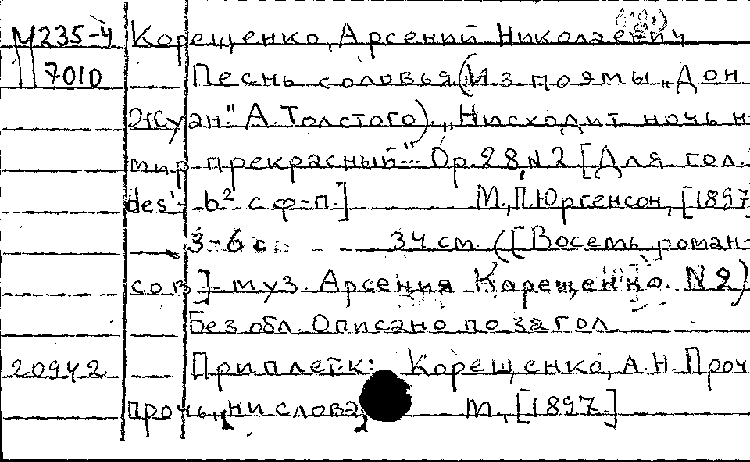 М235-4 Корещенко, Арсений Николаевич
7010 Песнь соловья (Из поэмы „Дон
Жуан" А. Толстого). „Нисходит ночь н
мир прекрасный" Ор. 28, N 2 [Для гол.
des¹- b² с ф-п.] М., П. Юргенсон, [1897
3-6 с. 34 см. ([Восемь роман-
сов] муз. Арсения Карещенко. N 2)
Без обл. Описано по загол
20942 Приплетк: Корещенко, А. Н. Проч
прочь, ни слова М., [1897]